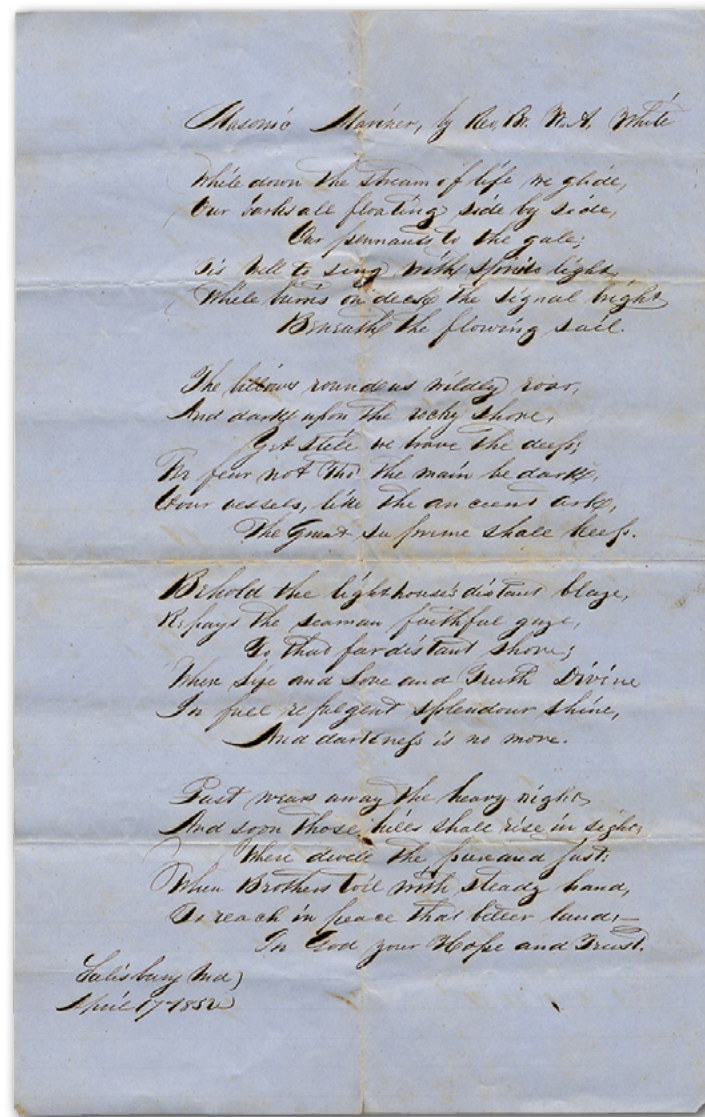 Masonic Mariner, by Rev. Br. W. A. White
While down the stream of life we glide,
Our barks all floating side by side,
Our pennants to the gale;
Tis well to sing with spirits light,
While burns on deck the signal bright
Beneath the flowing sail.
The billows round us wildly roar,
And dark upon the rocky shore,
Yet still we brave the deep;
We fear not tho' the main be dark,
Our vessels, like the ancient ark,
The Great Supreme shall keep.
Behold the lighthouse's distant blaze,
Repays the seaman faithful gaze,
To that far distant shore;
When Life and Love and Truth Divine
In full refulgent splendour shine,
And darkness is no more.
Fast wears away the heavy night,
And soon those hills shall rise in sight,
Where dwell the pure and just:
Then Brothers toil with steady hand,
To reach in peace that better land:—
In God your Hope and Trust.
Salisbury Md,
April 17 1852